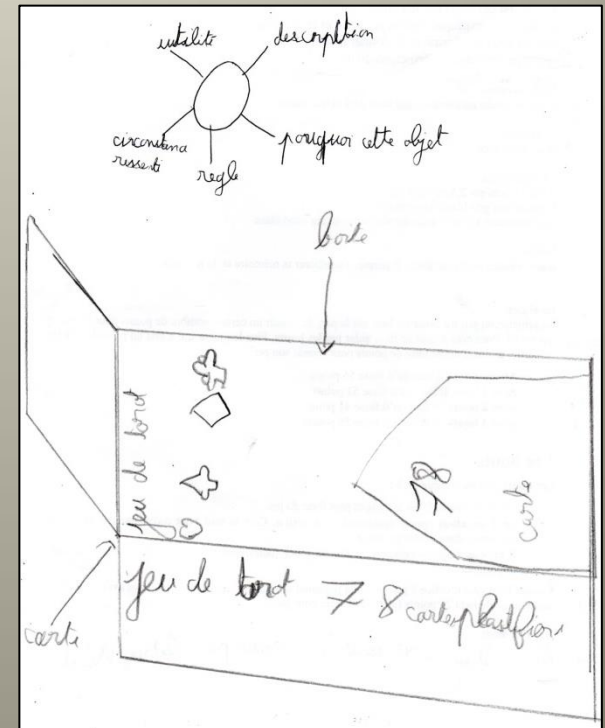 utilité
description
circonstena
ressenti
regle
pourquoi cette objet
boite
jeu de tarot
78
carte
jeu de tarot 78 carte plastifier
carte